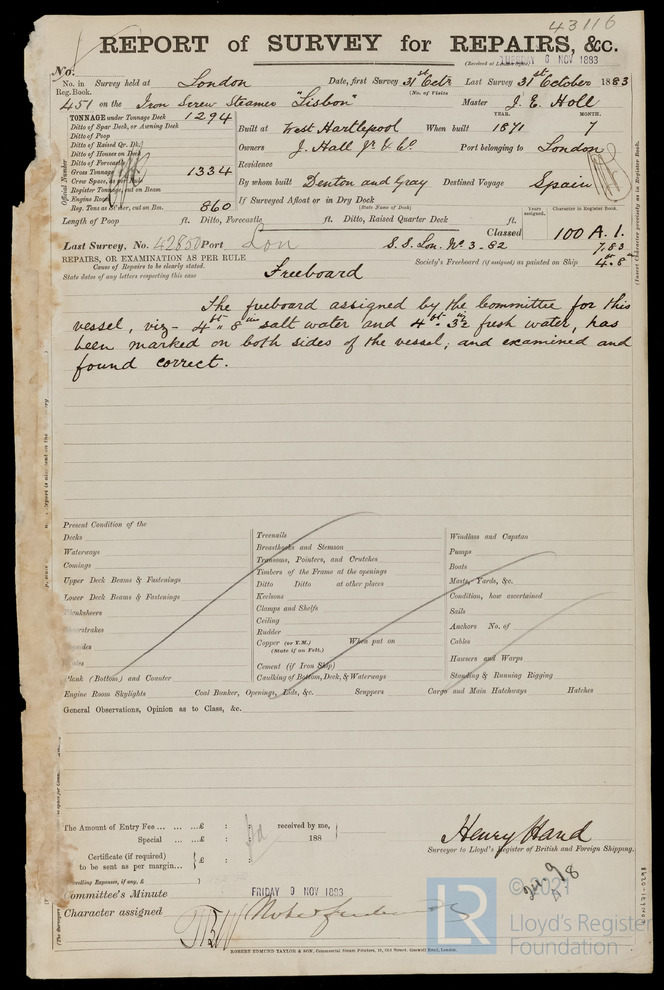 43116
REPORT of SURVEY for REPAIRS, &c.
TUESDAY 6 NOV 1883
No.
No. in Survey held at London Date, first Survey 31st Octr Last Survey 31st October 1883
Reg. Book. (No. of Visits
451 on the Iron Screw Steamer "Lisbon" Master J. E. Holl
TONNAGE under Tonnage Deck 1294 YEAR. MONTH.
Ditto of Spar Deck, or Awning Deck Built at West Hartlepool When built 1871 7
Ditto of Poop
Ditto of Raised Qr. Dk. Owners J. Hall Jr & Co. Port belonging to London
Ditto of House on Deck
Ditto of Forecastle Residence
Gross Tonnage 1334
Crew Space, By whom built Denton and Gray Destined Voyage Spain
Register Tonnage, cut on Beam
Engine Room If Surveyed Afloat or in Dry Dock
Reg. Tons as cut on Bm. 860 (State Name of Dock)
Official Number
Years assigned. Character in Register Book.
Length of Poop ft. Ditto, Forecastle ft. Ditto, Raised Quarter Deck ft.
Classed 100 A. 1.
7,83
Last Survey, No. 42850 Port Lon S.S. Lon. No 3-82
REPAIRS, OR EXAMINATION AS PER RULE Society's Freeboard (if assigned) as painted on Ship 4ft 8in
Cause of Repairs to be clearly stated.
State dates of any letters respecting this case Freeboard
The freeboard assigned by the Committee for this
vessel, viz- 4ft 8in salt water and 4ft 3½in fresh water, has
been marked on both sides of the vessel, and examined and
found correct.
Present Condition of the
Decks
Waterways
Comings
Upper Deck Beams & Fastenings
Lower Deck Beams & Fastenings
Planksheers
Sheerstrakes
Plank (Bottom) and Counter
Treenails
Breasthooks and Stemson
Transoms, Pointers, and Crutches
Timbers of the Frame at the openings
Ditto Ditto at other places
Keelsons
Clamps and Shelfs
Ceiling
Rudder
Copper (or Y.M.) When put on
(State if on Felt.)
Cement (if Iron Ship)
Caulking of Bottom, Deck, & Waterways
Windlass and Capstan
Pumps
Boats
Masts, Yards, &c.
Condition, how ascertained
Sails
Anchors No. of
Cables
Hawsers and Warps
Standing & Running Rigging
Engine Room Skylights Coal Bunker, Openings, Lids, &c. Scuppers Cargo and Main Hatchways Hatches
General Observations, Opinion as to Class, &c.
The Amount of Entry Fee ... ... ... £ : : received by me,
Special ... ... £ : : 188
Certificate (if required)
to be sent as per margin... £ : :
Travelling Expenses, if any, £
Henry Hand
Surveyor to Lloyd's Register of British and Foreign Shipping.
Committee's Minute FRIDAY 9 NOV 1883
Character assigned
ROBERT EDMUND TAYLOR & SON, Commercial Steam Printers, 19, Old Street, Goswell Road, London.
© 2021
LR
Lloyd's Register
Foundation